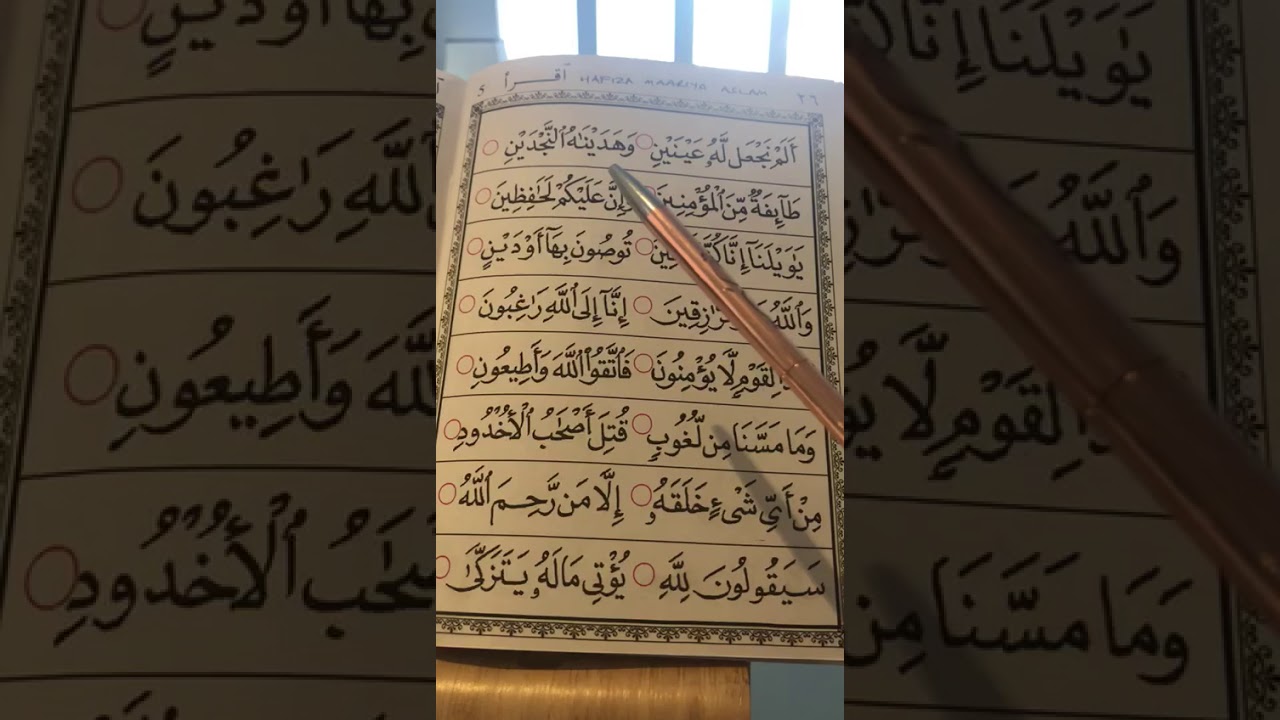 ٢٦ HAFIZA MAARIYA ASLAM اقرأ 5
أَلَمْ نَجْعَل لَّهُۥ عَيْنَيْنِ ○ وَهَدَيْنَـٰهُ ٱلنَّجْدَيْنِ ○
طَآئِفَةٌ مِّنَ ٱلْمُؤْمِنِينَ إِنَّ عَلَيْكُمْ لَحَـٰفِظِينَ ○
يَـٰوَيْلَنَآ إِنَّا كُنَّا ○ تُوصُونَ بِهَآ أَوْ دَيْنٍ ○
وَٱللَّهُ ٱلرَّٰزِقِينَ ○ إِنَّآ إِلَى ٱللَّهِ رَٰغِبُونَ ○
لِقَوْمٍ لَّا يُؤْمِنُونَ ○ فَٱتَّقُوا۟ ٱللَّهَ وَأَطِيعُونِ ○
وَمَا مَسَّنَا مِن لُّغُوبٍ ○ قُتِلَ أَصْحَـٰبُ ٱلْأُخْدُودِ ○
مِنْ أَىِّ شَىْءٍ خَلَقَهُۥ ○ إِلَّا مَن رَّحِمَ ٱللَّهُ ○
سَيَقُولُونَ لِلَّهِ ○ يُؤْتِى مَالَهُۥ يَتَزَكَّىٰ ○